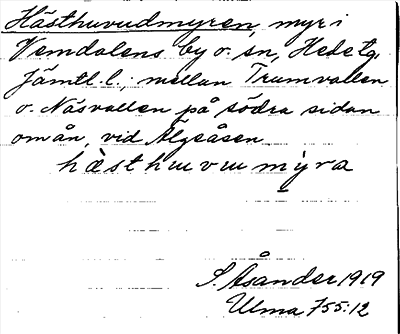 Hästhuvudmyren, myr i
Vemdalens by o. sn, Hede tg,
Jämtl. l.; mellan Trumvallen
o. Näsvallen på södra sidan
om ån, vid Älgsåsen
hàsthuvumỳra
S. Åsander 1919
Ulma 755:12